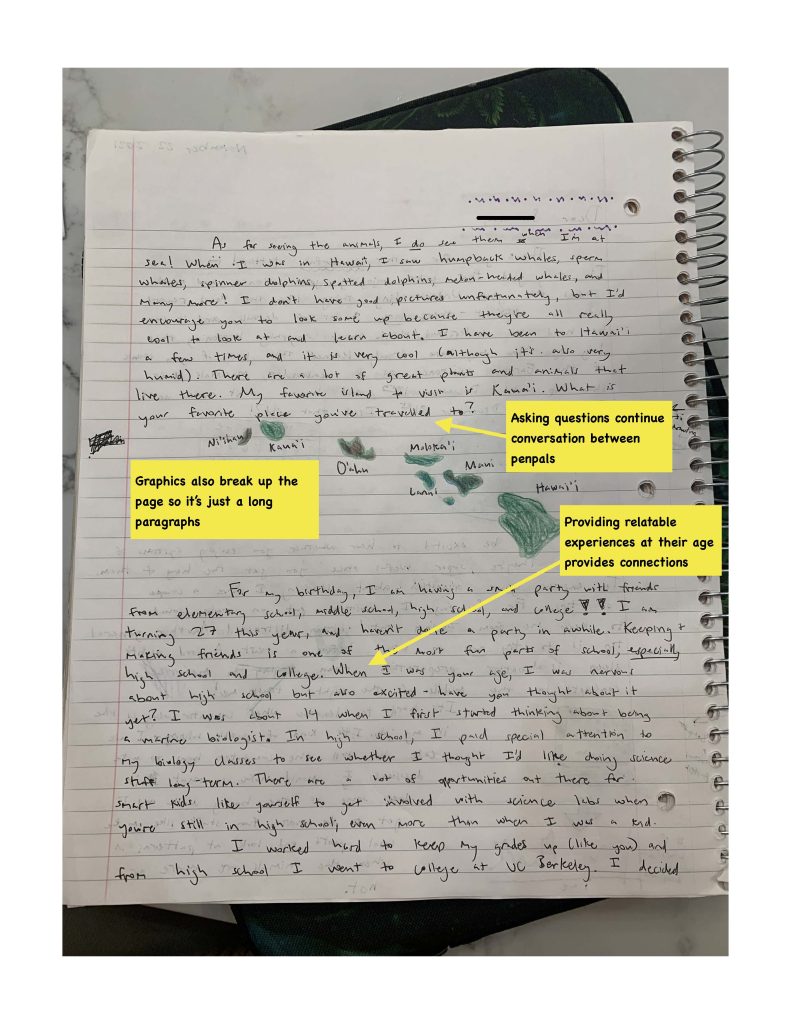 November 22, 2021
As for seeing the animals, I do see them when I'm at
sea! When I was in Hawai'i, I saw humpback whales, sperm
whales, spinner dolphins, spotted dolphins, melon-headed whales, and
many more! I don't have good pictures unfortunately, but I'd
encourage you to look some up because they're all really
cool to look at and learn about. I have been to Hawai'i
a few times, and it is very cool (although it's also very
humid). There are a lot of great plants and animals that
live there. My favorite island to visit is Kaua'i. What is
your favorite place you've travelled to?
Asking questions continue
conversation between
penpals
Ni'ihau
Kaua'i
O'ahu
Moloka'i
Maui
Lanai
Hawai'i
Graphics also break up the
page so it's just a long
paragraphs
Providing relatable
experiences at their age
provides connections
For my birthday, I am having a small party with friends
from elementary school, middle school, high school, and college!! I am
turning 27 this year, and haven't done a party in awhile. Keeping +
making friends is one of the most fun parts of school, especially
high school and college. When I was your age, I was nervous
about high school but also excited - have you thought about it
yet? I was about 14 when I first started thinking about being
a marine biologist. In high school, I paid special attention to
my biology classes to see whether I thought I'd like doing science
stuff long-term. There are a lot of opportunities out there for
smart kids like yourself to get involved with science labs when
you're still in high school, even more than when I was a kid.
I worked hard to keep my grades up (like you) and
from high school I went to college at UC Berkeley. I decided